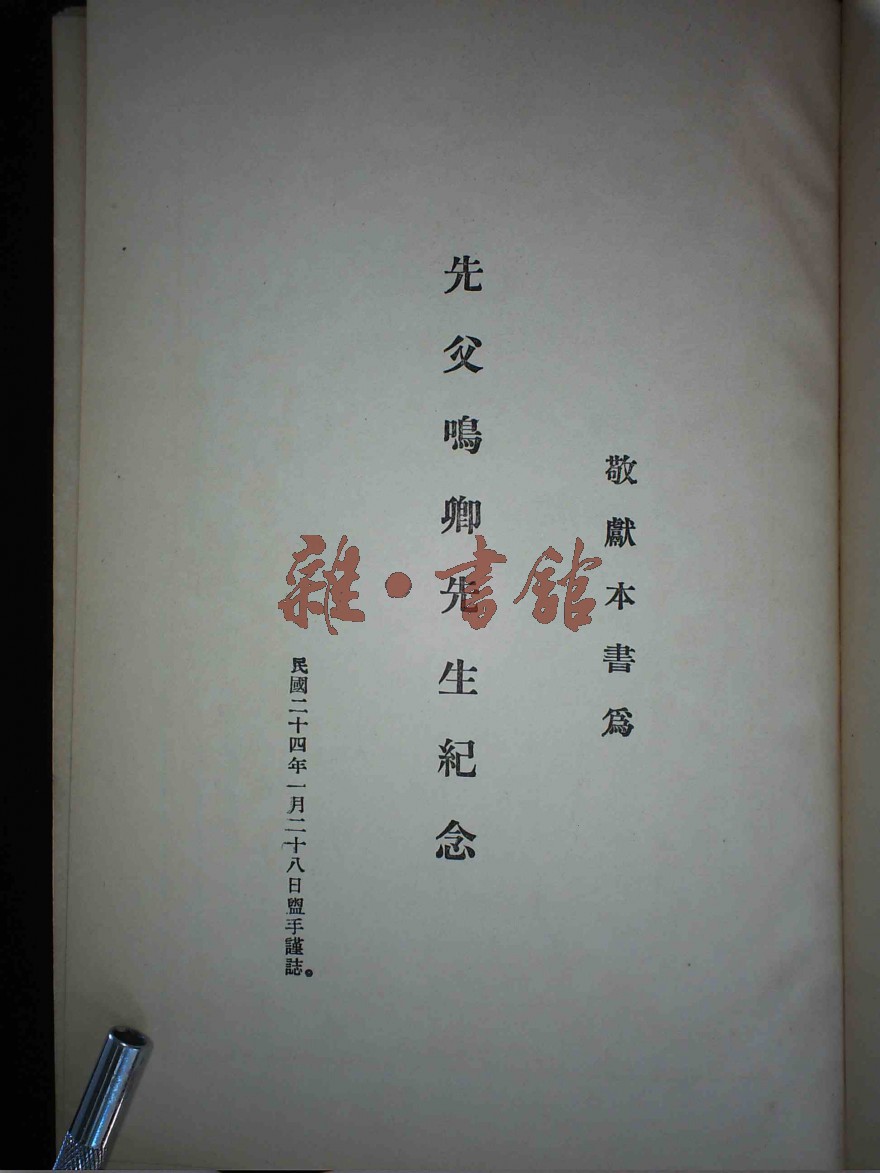 敬獻本書爲
先父鳴卿先生紀念
民國二十四年一月二十八日盥手謹誌。
雜·書館